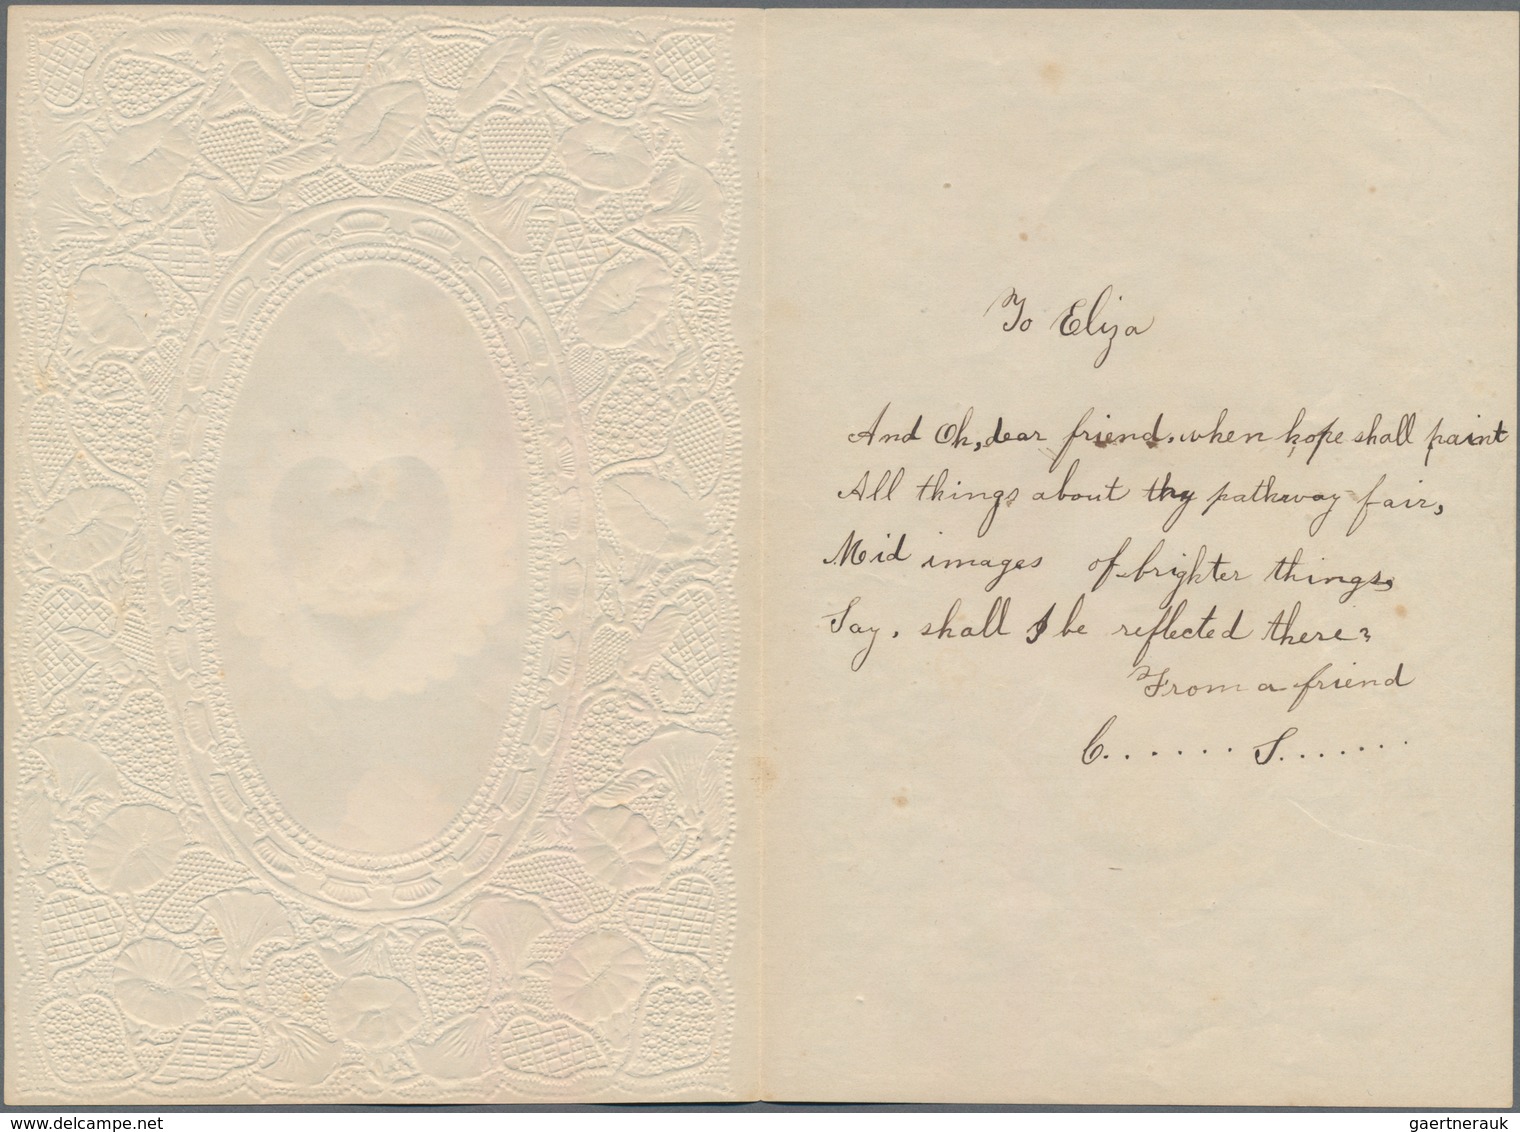 To Eliza
And Oh, dear friend, when hope shall paint
All things about thy pathway fair,
Mid images of brighter things,
Say, shall I be reflected there?
From a friend
C...... S.......
delcampe.net
gaertnerauk